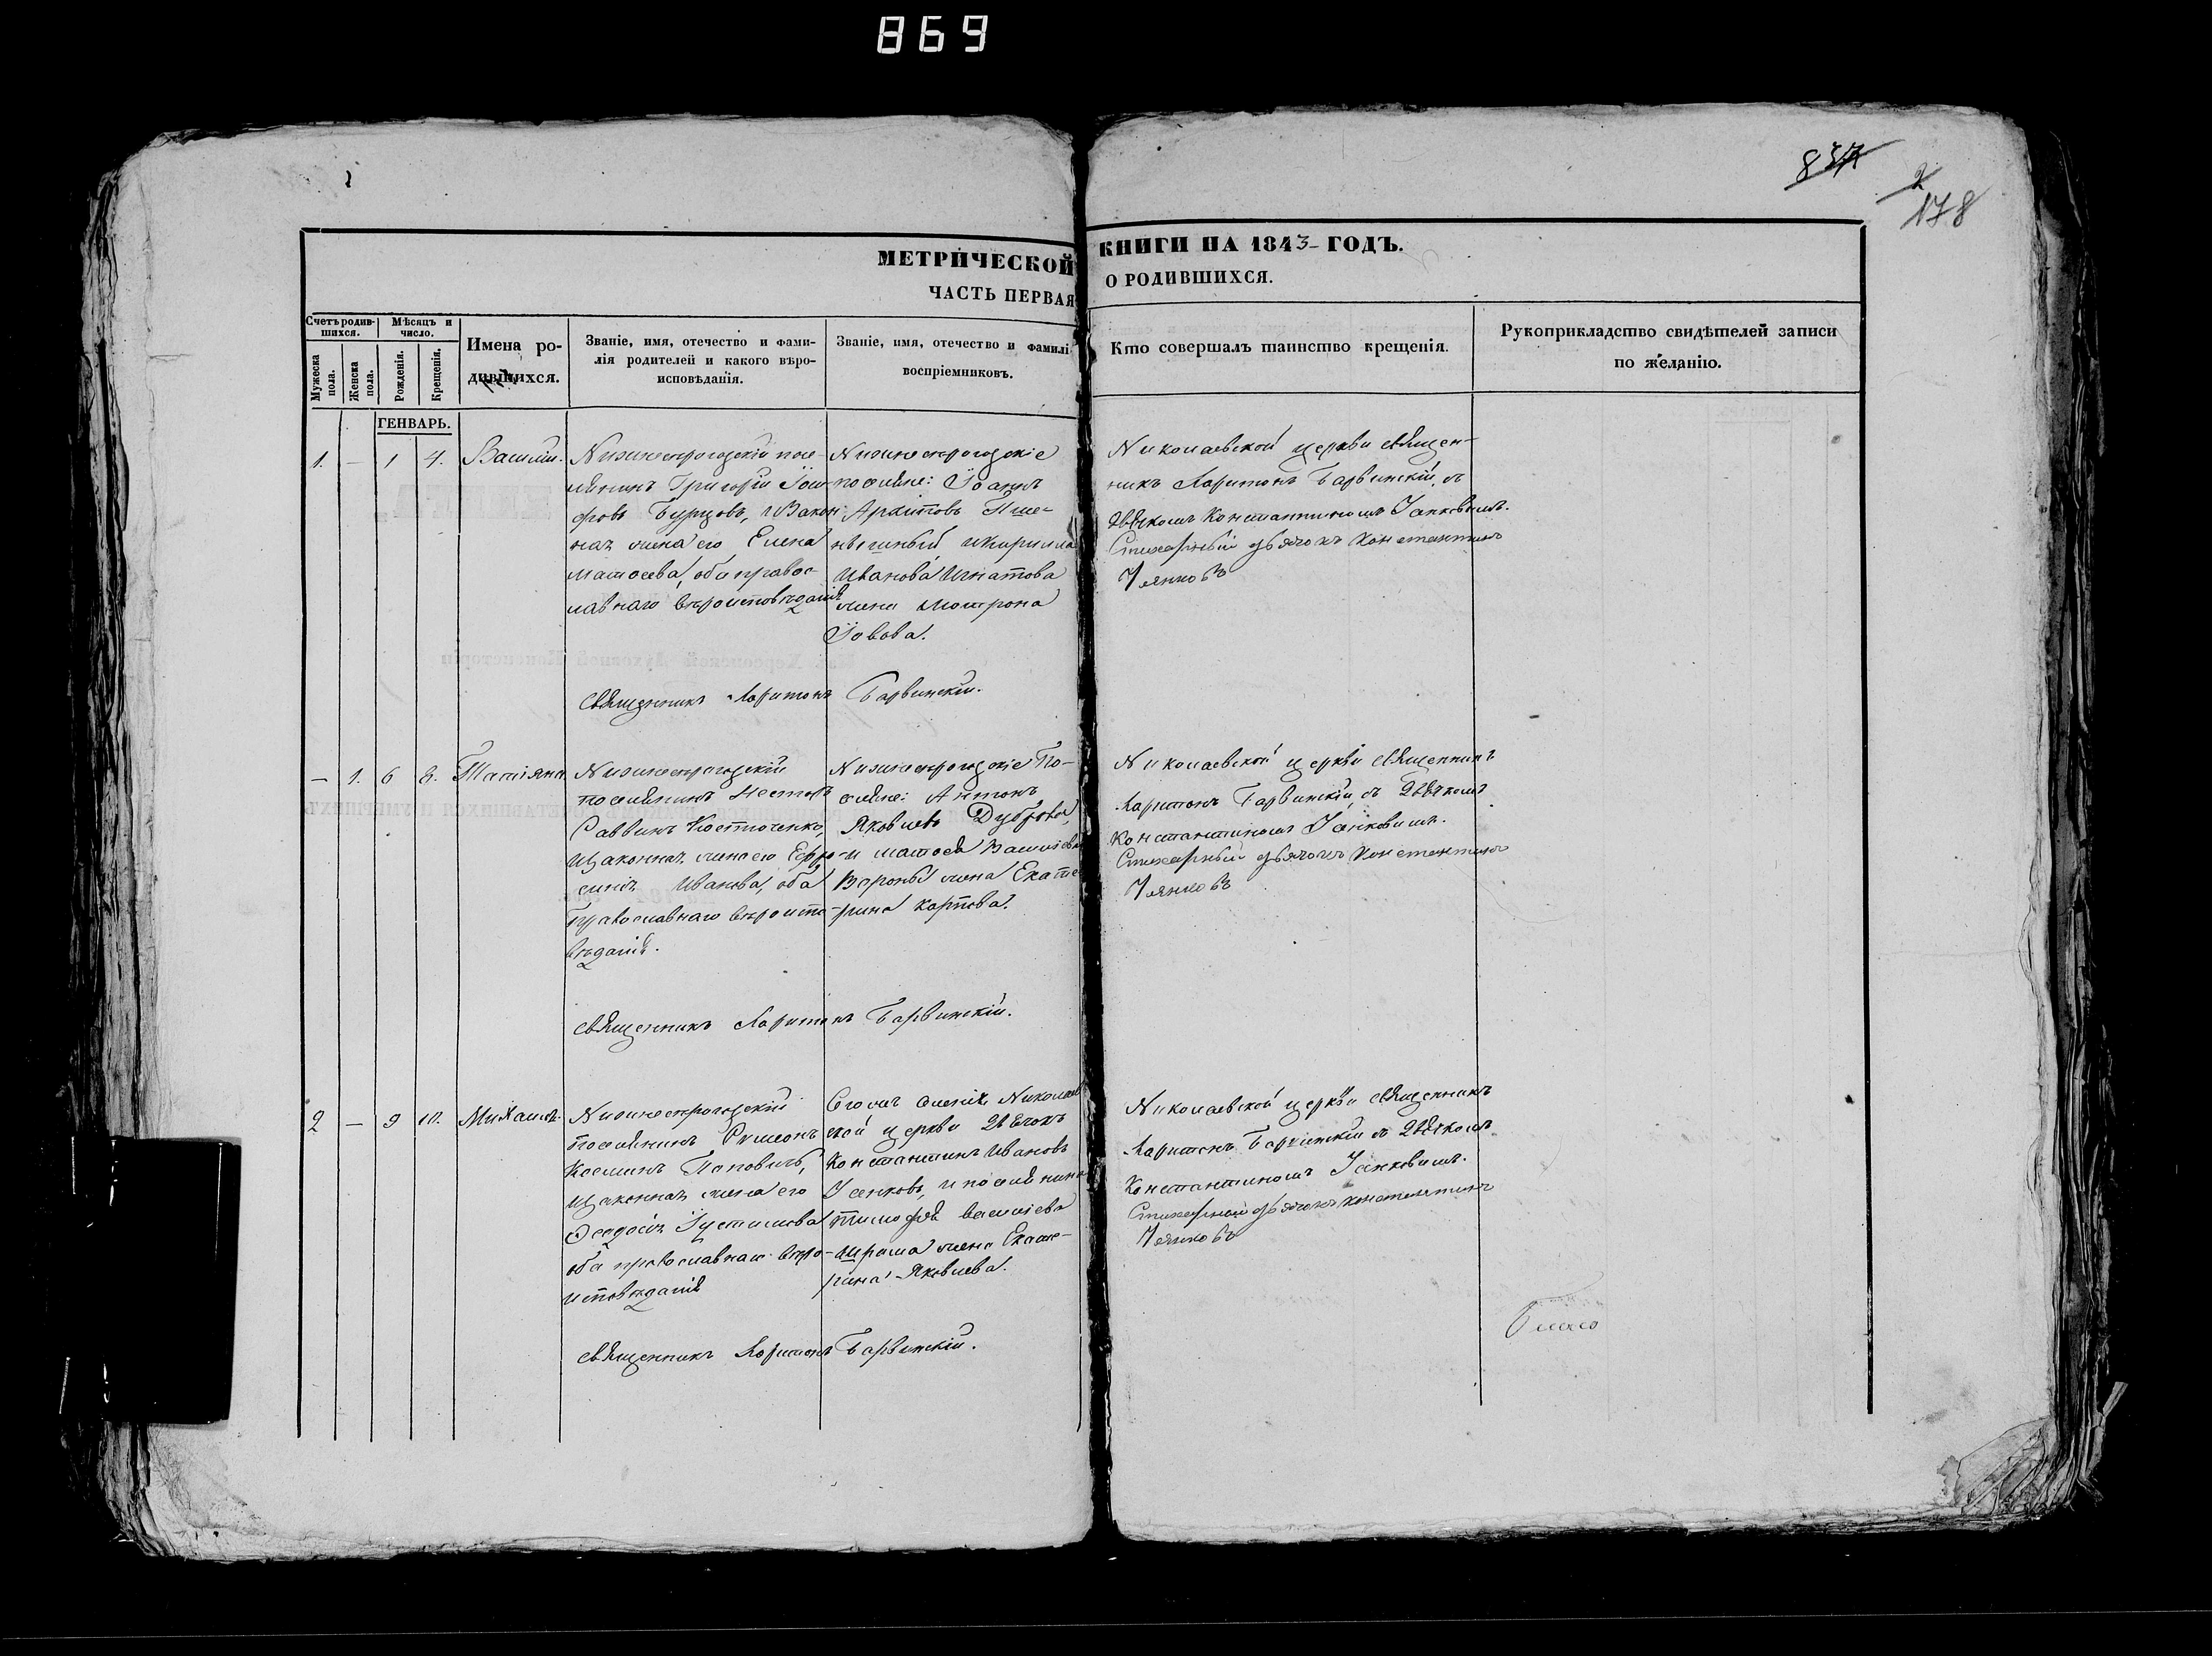 869
837
2
178
МЕТРИЧЕСКОЙ КНИГИ НА 1843 ГОДЪ.
ЧАСТЬ ПЕРВАЯ О РОДИВШИХСЯ.
Счетъ родив-
шихся.
Мужеска пола.
Женска пола.
Мѣсяцъ и
число.
Рожденія.
Крещенія.
Имена ро-
дившихся.
Званіе, имя, отечество и фами-
лія родителей и какого вѣро-
исповѣданія.
Званіе, имя, отечество и фамилі
воспріемниковъ.
Кто совершалъ таинство крещенія.
Рукоприкладство свидѣтелей записи
по желанію.
ГЕНВАРЬ.
1. — 1 4. Василій.
Нижнесѣрогозскій посе-
лянинъ Григорій Іоси-
фовъ Бурцовъ, и закон-
ная жена его Елена
Матѳеева, оба правос-
лавнаго вѣроисповѣданія
Нижнесѣрогозскіе
поселяне: Іоаннъ
Архиповъ Пше-
нышный, и Кирилла
Иванова Игнатова
жена Мотрона
Іовова.
Николаевской церкви священ-
никъ Харитонъ Барвинскій, съ
дьячкомъ Константиномъ Ганковымъ.
Стихарный дьячокъ Константинъ
Ганковъ
Священникъ Харитонъ Барвинскій.
— 1. 6 8. Татіяна
Нижнесѣрогозскій
поселянинъ Несторъ
Саввинъ Костюченко,
и законная жена его Ефро-
синія Иванова, оба
православнаго вѣроиспо-
вѣданія.
Нижнесѣрогозскіе По-
селяне: Антонъ
Яковлевъ Дуброва,
и Матѳея Василіева
Вороны жена Екате-
рина Карпова.
Николаевской церкви священникъ
Харитонъ Барвинскій, съ дьячкомъ
Константиномъ Ганковымъ.
Стихарный дьячокъ Константинъ
Ганковъ
Священникъ Харитонъ Барвинскій.
2 — 9 10. Михаилъ.
Нижнесѣрогозскій
поселянинъ Симеонъ
Косминъ Поповичъ,
и законная жена его
Ѳеодосія Іустинова
оба православнаго вѣро-
исповѣданія
Николаев-
ской церкви дьячокъ
Константинъ Ивановъ
Ганковъ, и поселянина
Тимофея Василіева
жена Екате-
рина Яковлева.
Николаевской церкви священникъ
Харитонъ Барвинскій съ дьячкомъ
Константиномъ Ганковымъ.
Стихарный дьячокъ Константинъ
Ганковъ
Священникъ Харитонъ Барвинскій.